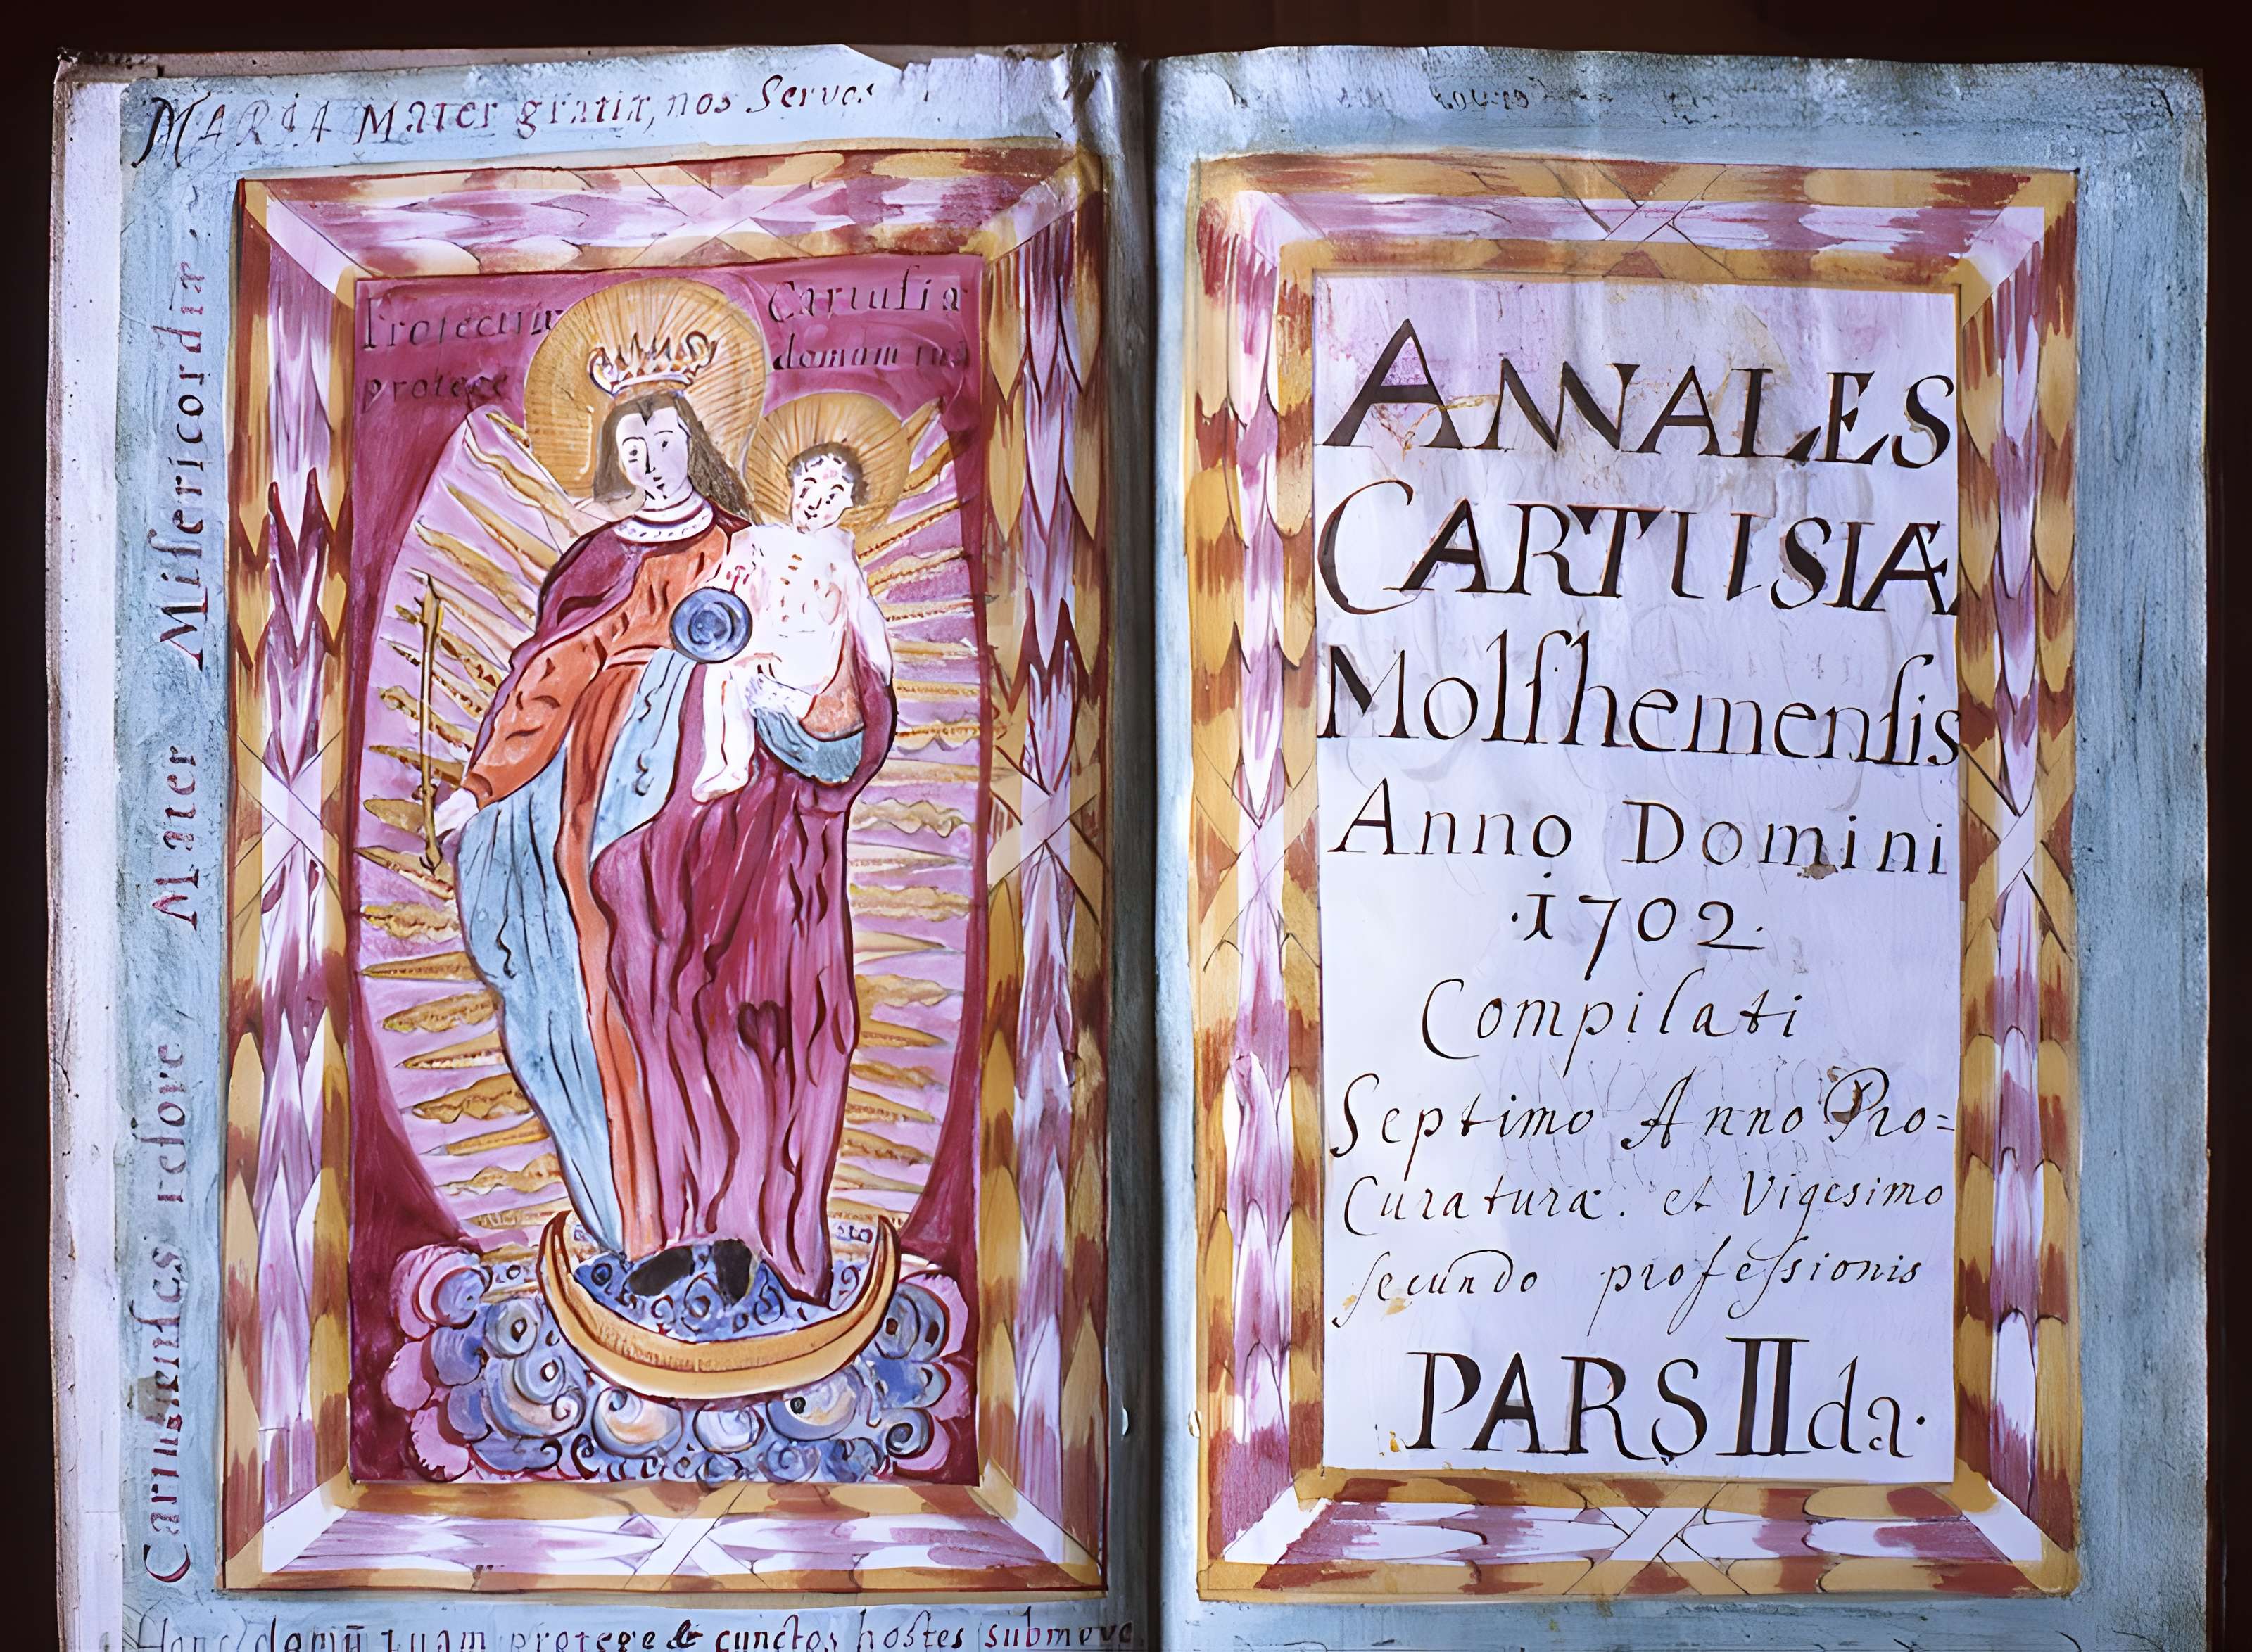 MARIA Mater gratiæ, nos Servos
Carthusienses respice, Mater Misericordiæ
protege
Cartusiæ
domum tuā
Hanc domū tuam protege & cunctos hostes submove
ANNALES
CARTUSIÆ
Molſhemenſis
Anno Domini
·1702·
Compilati
Septimo Anno Pro=
Curaturæ. et Vigesimo
ſecundo profeſsionis
PARS IIda·